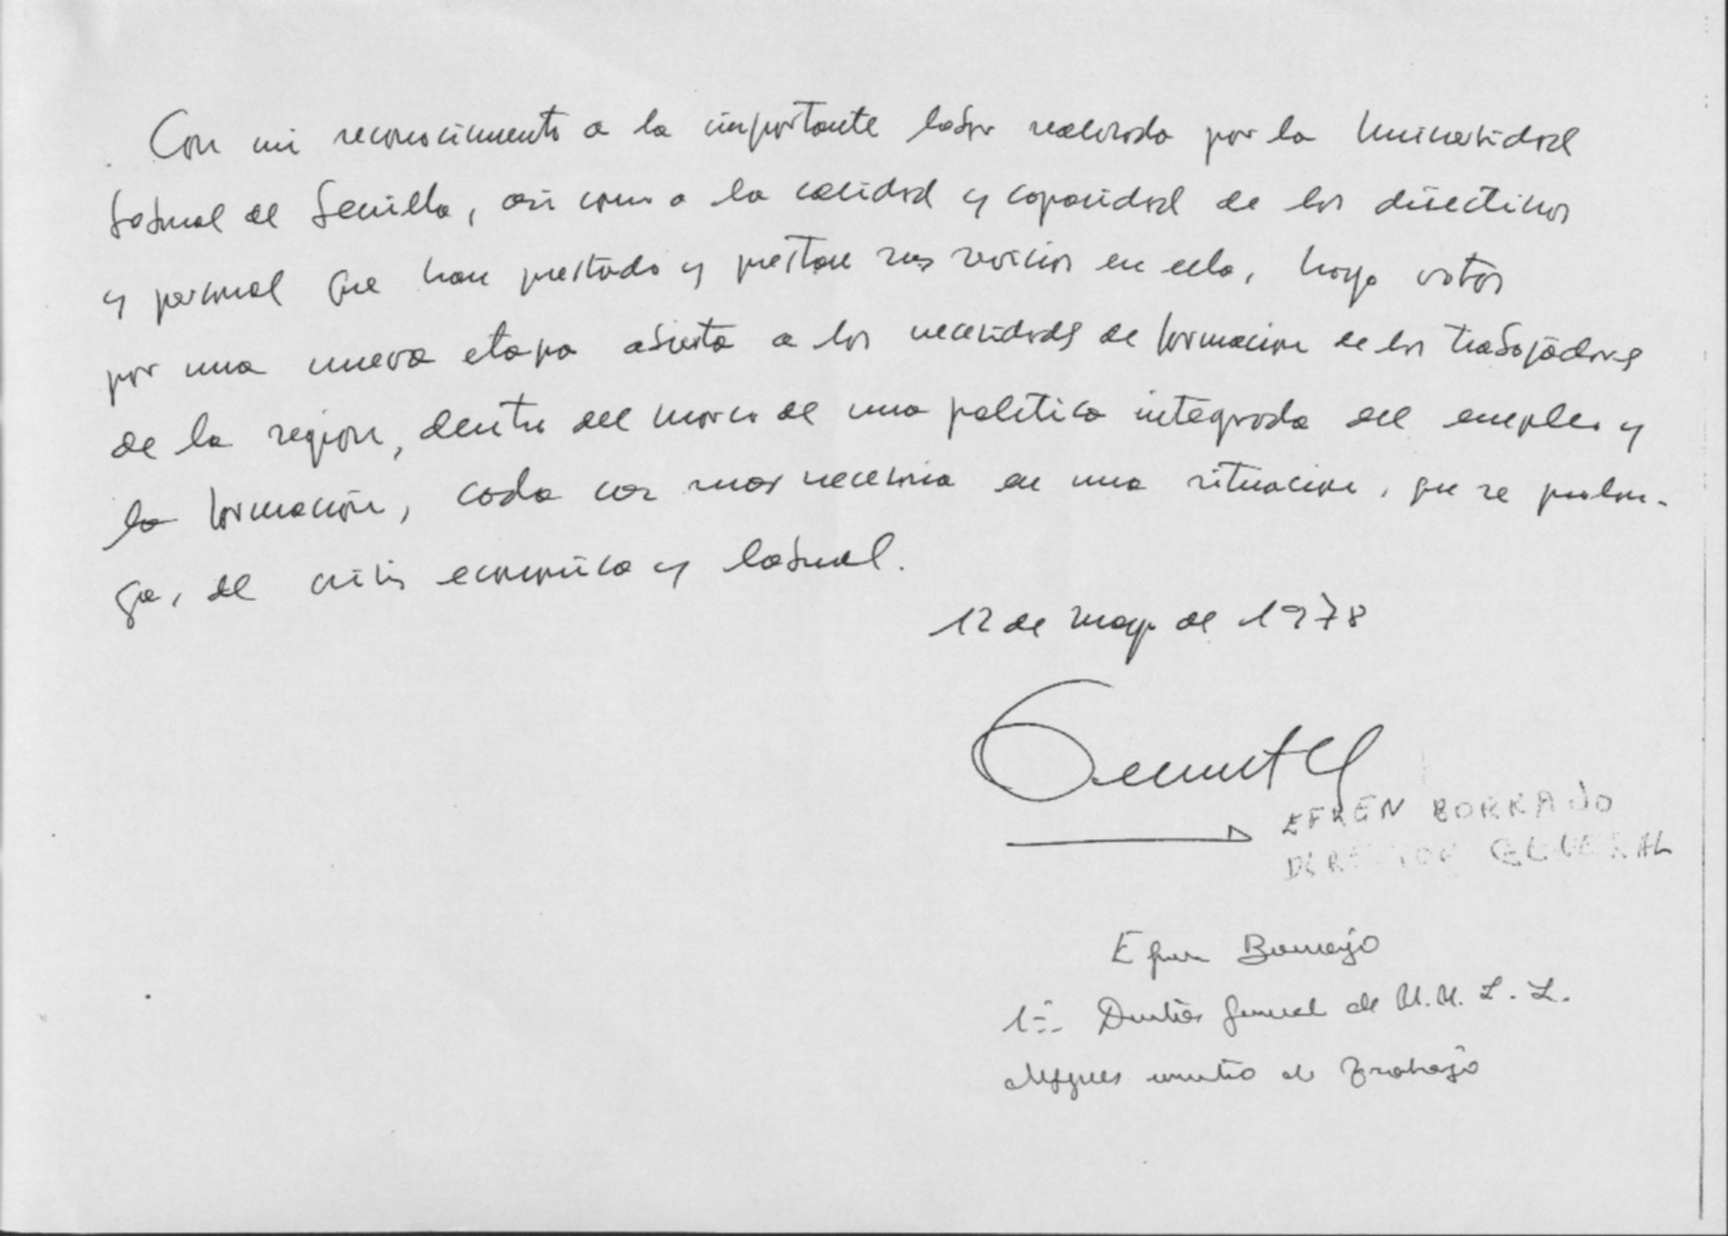 Con mi reconocimiento a la importante labor realizada por la Universidad
Laboral de Sevilla, así como a la calidad y capacidad de los directivos
y personal que han prestado y prestan sus servicios en ella, hago votos
por una nueva etapa abierta a las necesidades de formación de los trabajadores
de la región, dentro del marco de una política integrada del empleo y
la formación, cada vez más necesaria en una situación, que se prolon-
ga, de crisis económica y laboral.
12 de mayo de 1978
EFREN BORRAJO
DIRECTOR GENERAL
Efren Borrajo
Director General de U.U. L.L.
Después ministro de Trabajo